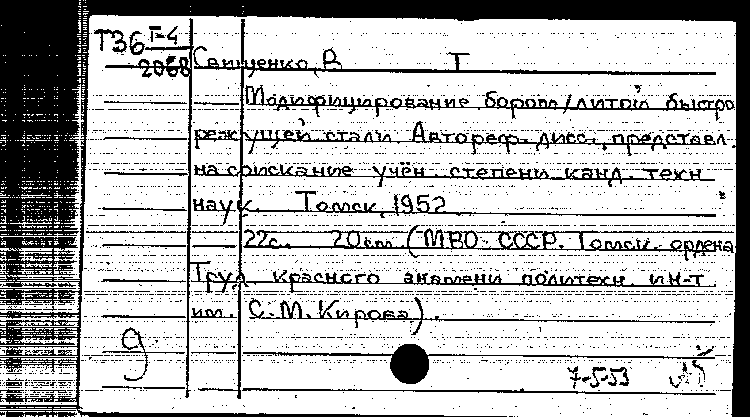 Т36 Т-4
2068
Свищенко, В Т
Модифицирование бором литой быстро
режущей стали. Автореф. дисс., представл.
на соискание учён. степени канд. техн
наук. Томск, 1952
22с. 20см (МВО СССР. Томск. ордена
Труд красного знамени политехн. ин-т
им. С.М. Кирова).
9
7-5-53